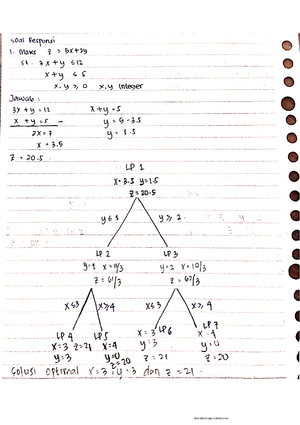 Soal Responsi
1. Maks z = 5x+2y
st. 3x + y ≤ 12
x + y ≤ 5
x, y ≥ 0 x,y Integer
Jawab :
3x + y = 12 x + y = 5
x + y = 5 – y = 5 - 3.5
2x = 7 y = 1.5
x = 3.5
z = 20.5
LP 1
x = 3.5 y = 1.5
z = 20.5
y ≤ 1 y ≥ 2
LP 2 LP 3
y = 1 x = 11/3 y = 2 x = 10/3
z = 61/3 z = 60/3
x ≤ 3 x ≥ 4 x ≤ 3 x ≥ 4
LP 4 LP 5 LP 6 LP 7
x = 3 z = 21 x = 4 x = 3 x = 4
y = 3 y = 0 y = 3 y = 0
z = 20 z = 21 z = 20
Solusi optimal x = 3 y = 3 dan z = 21.